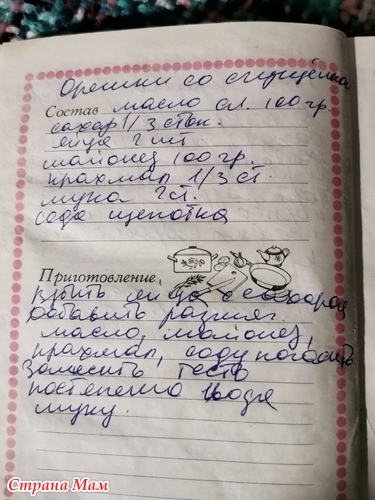 Орешки со сгущёнкой
Состав масло сл. 100 гр.
сахар 1/3 стак.
яйца 2 шт.
майонез 100 гр.
крахмал 1/3 ст.
мука 2 ст.
сода щепотка
Приготовление
Взбить яйца с сахаром
добавить размяг.
масло, майонез,
крахмал, соду погасить
Замесить тесто
постепенно вводя
муку.
Страна Мам